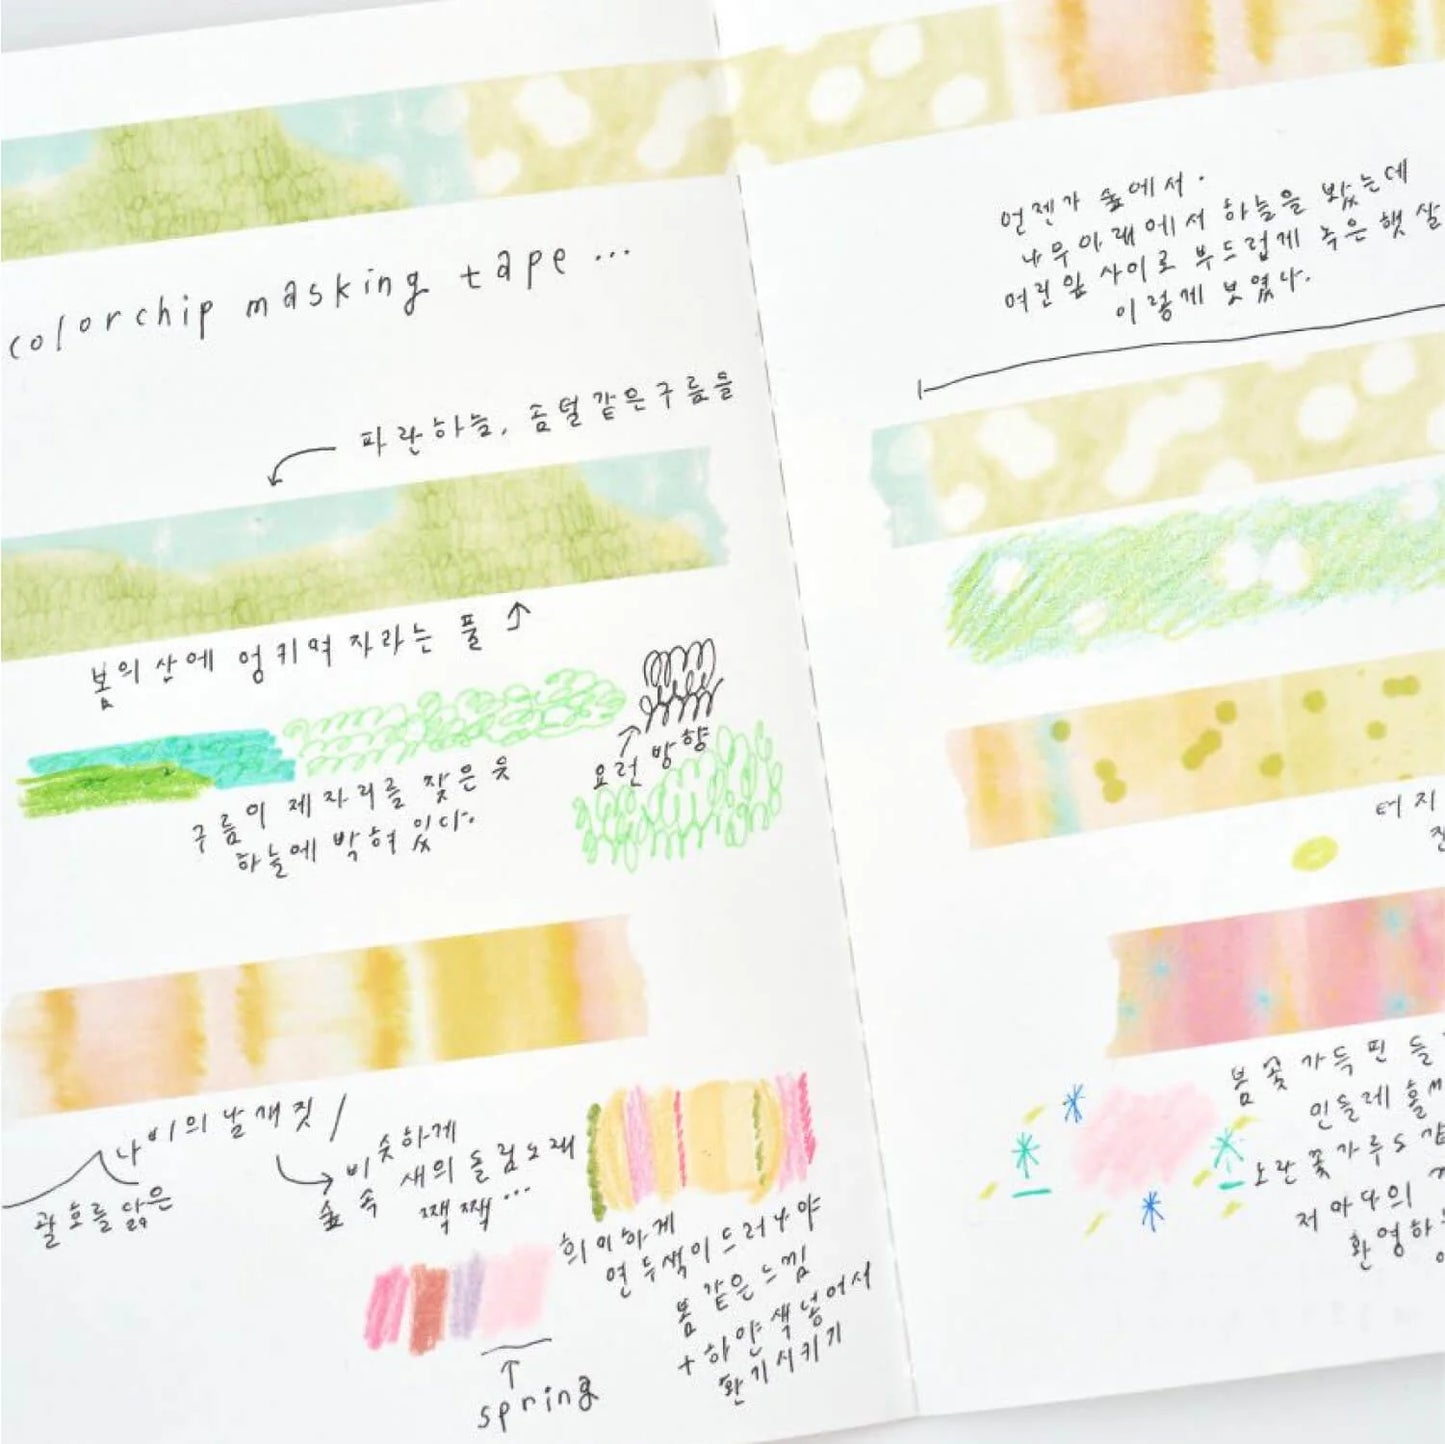 colorchip masking tape ...
파란하늘, 솜털같은구름을
봄의산에 엉키며 자라는 풀
요런방향
구름이 제자리를 찾은 듯
하늘에 박혀 있다.
나비의 날개짓
괄호를 닮은
비슷하게
숲 속 새의 울림노래
짹짹...
희미하게
연두색이 드러나야
봄 같은 느낌
+ 하얀색 넣어서
환기시키기
spring
언젠가 숲에서.
나무아래에서 하늘을 봤는데
여린잎 사이로 부드럽게 녹은 햇살
이렇게 보였다.
터지
봄꽃 가득 핀 들
민들레 홀씨
노란 꽃가루도
저마다의
환영하